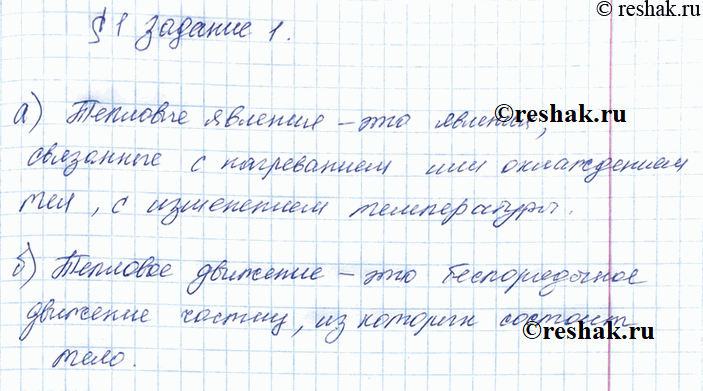 § 1 Задание 1.
©reshak.ru
а) Тепловые явления – это явления,
связанные с нагреванием или охлаждением
©reshak.ru
тел, с изменением температуры.
б) Тепловое движение – это беспорядочное
движение частиц, из которых состоит
©reshak.ru
тело.